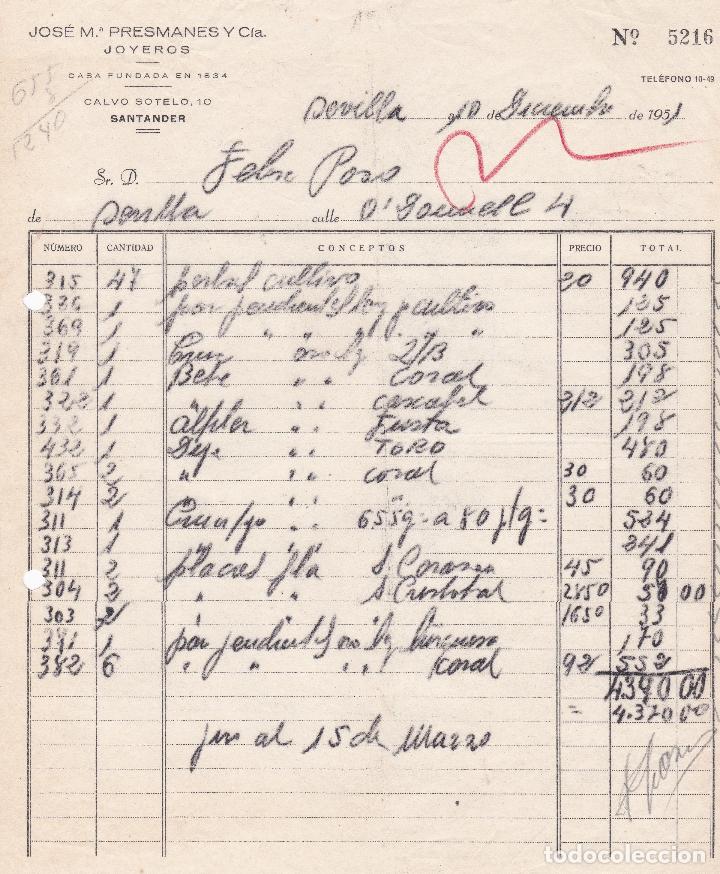 JOSÉ M.ª PRESMANES Y Cía.
JOYEROS
CASA FUNDADA EN 1834
CALVO SOTELO, 10
SANTANDER
Nº 5216
TELÉFONO 10-49
655
8
5240
Sevilla 10 de Diciembre de 1951
Sr. D. Felix Pozo
de Sevilla calle O'Donnell 4
NÚMERO CANTIDAD CONCEPTOS PRECIO TOTAL
315 47 perlas cultivo 20 940
336 1 par pendientes y cultivo 125
369 1 " " " " 125
319 1 Cruz 2/B 305
361 1 Bebe " " Coral 198
322 1 " " " 212 212
332 1 alfiler " " Fusta 198
432 1 Dije " " TORO 480
365 2 " " " coral 30 60
314 2 " " " 30 60
311 1 Cruz " " 655 g. a 80 p/g = 524
313 1 " " " 241
311 2 placas pla S. Corazon 45 90
304 2 " " S. Cristobal 2850 57 00
303 2 " " 1650 33
381 1 par pendientes 170
382 6 " " " " coral 92 552
4390 00
= 4.370 00
al 15 de Marzo
todocoleccion.net